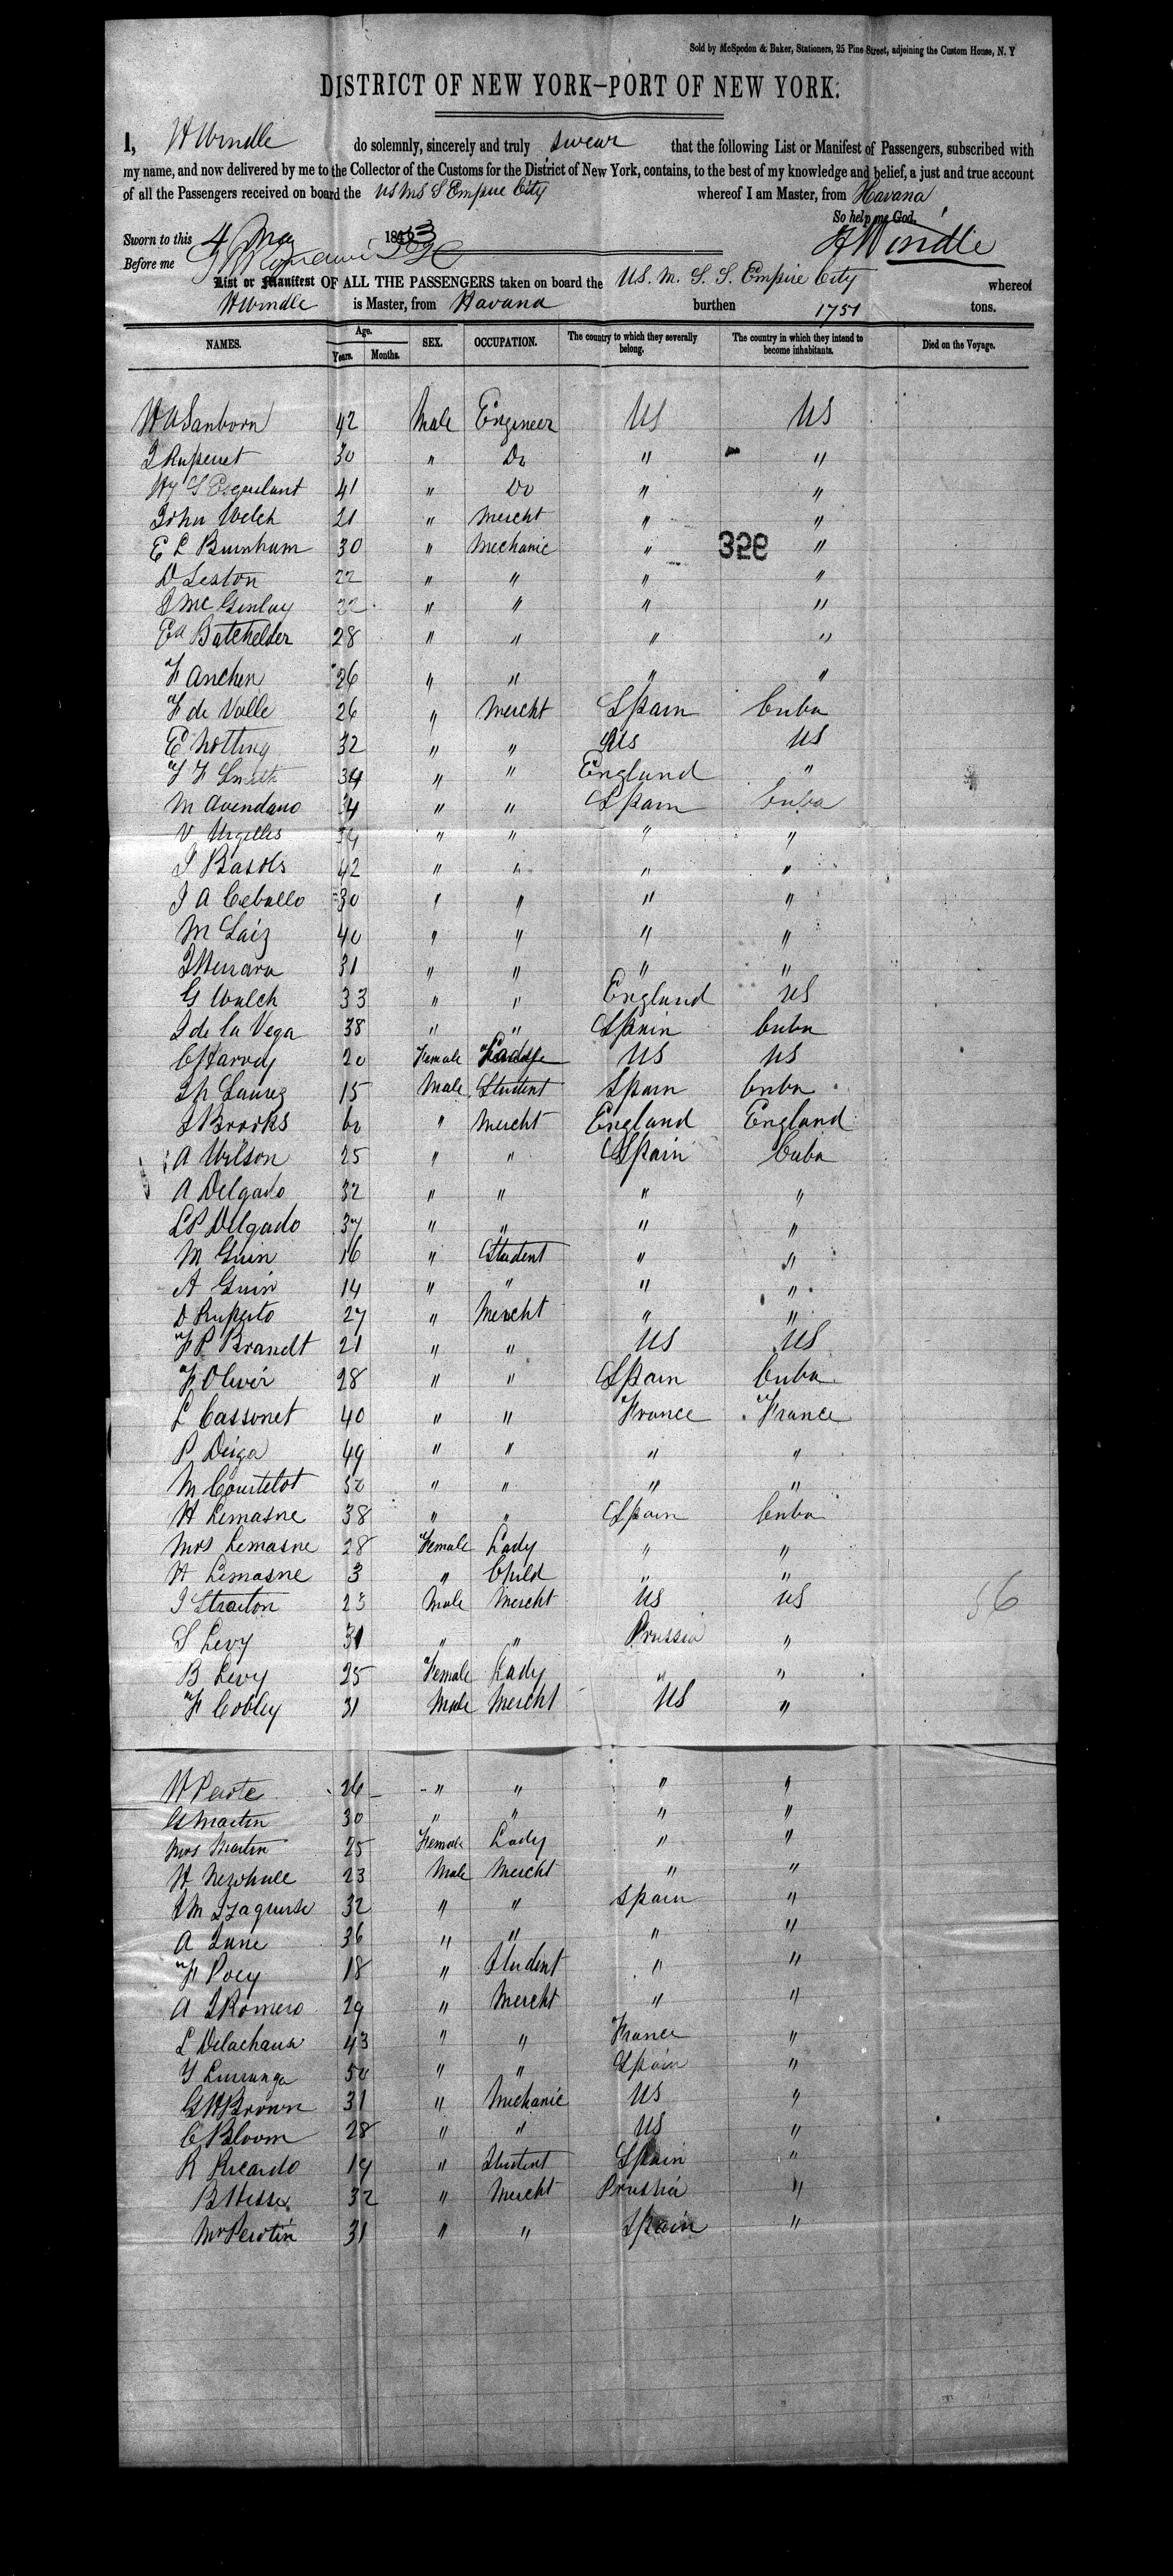 Sold by McSpedon & Baker, Stationers, 25 Pine Street, adjoining the Custom House, N. Y
DISTRICT OF NEW YORK—PORT OF NEW YORK.
I, H Windle do solemnly, sincerely and truly swear that the following List or Manifest of Passengers, subscribed with
my name, and now delivered by me to the Collector of the Customs for the District of New York, contains, to the best of my knowledge and belief, a just and true account
of all the Passengers received on board the US M S S Empire City whereof I am Master, from Havana
So help me God.
Sworn to this 4 May 18 53 H Windle
Before me
List or Manifest OF ALL THE PASSENGERS taken on board the U.S. M. S. S. Empire City whereof
H Windle is Master, from Havana burthen 1751 tons.
NAMES. Age. Years. Months. SEX. OCCUPATION. The country to which they severally belong. The country in which they intend to become inhabitants. Died on the Voyage.
H A Sanborn 42 Male Engineer US US
30 " Do " "
41 " Do " "
John Welch 21 " Mercht " "
E L Burnham 30 " Mechanic " 329 "
D Seston 22 " " " "
J McGinlay 22 " " " "
Ed Batchelder 28 " " " "
F Anchen 26 " " " "
F de Valle 26 " Mercht Spain Cuba
E Notting 32 " " US US
F F Smith 34 " " England "
M Avendano 34 " " Spain Cuba
V Urgelles 34 " " " "
J Basols 42 " " " "
J A Ceballo 30 " " " "
M Saiz 40 " " " "
J Herrara 31 " " " "
G Walch 33 " " England US
J de la Vega 38 " " Spain Cuba
C Harvey 20 Female Lady US US
15 Male Student Spain Cuba
J Brooks 60 " Mercht England England
A Wilson 25 " " Spain Cuba
A Delgado 32 " " " "
L P Delgado 37 " " " "
M Guin 16 " Student " "
A Guin 14 " " " "
D Ruperto 27 " Mercht " "
F P Brandt 21 " " US US
F Oliver 28 " " Spain Cuba
L Cassonet 40 " " France France
P Deiga 49 " " " "
M Courtelot 32 " " " "
H Lemasne 38 " " Spain Cuba
Mrs Lemasne 28 Female Lady " "
H Lemasne 3 " Child " "
J Straiton 23 Male Mercht US US
56
S Levy 31 " " Prussia "
B Levy 25 Female Lady " "
F Cobley 31 Male Mercht US "
H Perote 26 " " " "
G Martin 30 " " " "
Mrs Martin 25 Female Lady " "
H Newhall 23 Male Mercht " "
32 " " Spain "
A June 36 " " " "
F Poey 18 " Student " "
A J Romero 29 " Mercht " "
L Delachaux 43 " " France "
50 " " Spain "
G H Brown 31 " Mechanic US "
C Bloom 28 " " US "
R Ricardo 19 " Student Spain "
B Hesse 32 " Mercht Prussia "
Mr Perotin 31 " " Spain "